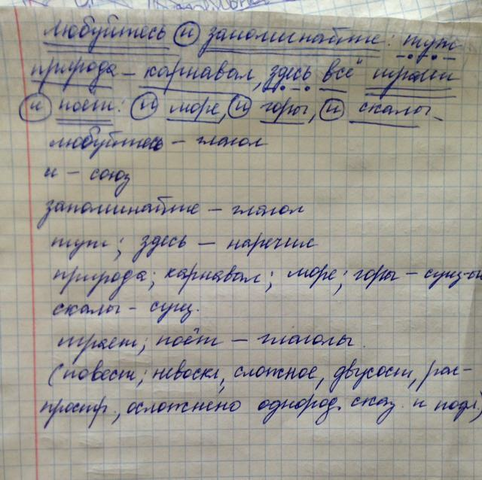 Любуйтесь и запоминайте: тут
природа – карнавал, здесь всё играет
и поёт: и море, и горы, и скалы.
любуйтесь – глагол
и – союз
запоминайте – глагол
тут; здесь – наречие
природа; карнавал; море; горы – сущ-ые
скалы – сущ.
играет; поёт – глаголы.
(повеств; невоскл, сложное, двусост, рас-
простр, осложнено однород. сказ. и подл.)